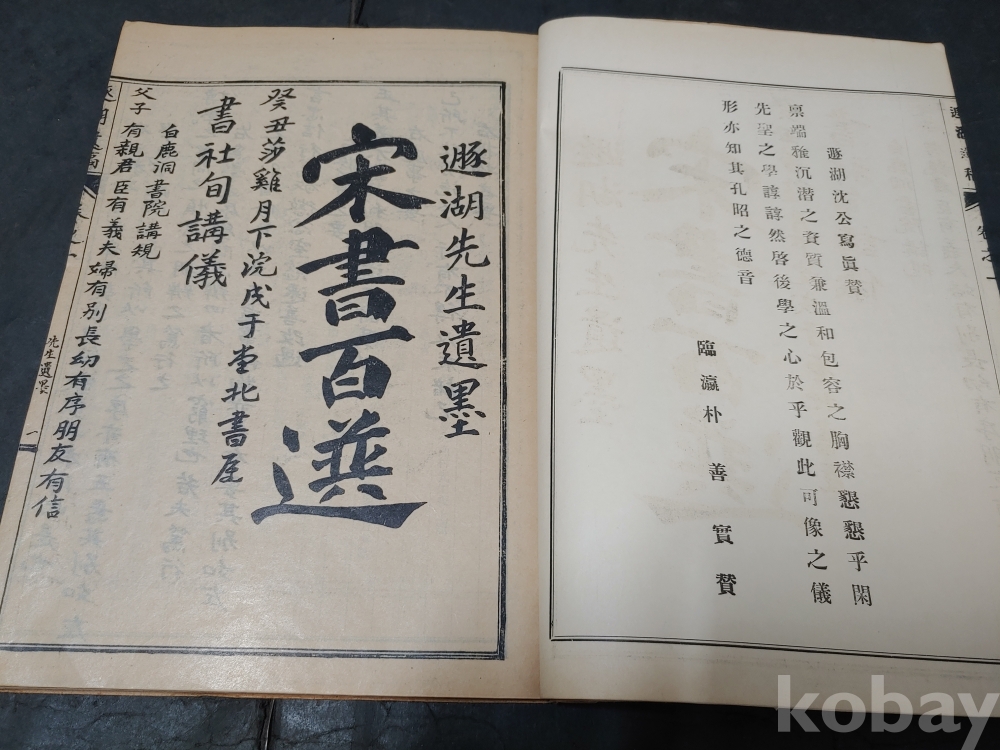 遯湖沈公寫眞贊
稟端雅沉潛之資質兼溫和包容之胸襟懇懇乎閑
先聖之學諄諄然啓後學之心於乎觀此可像之儀
形亦知其孔昭之德音
臨瀛朴善實贊
遯湖先生遺墨
宋書百選
癸丑莎雞月下浣戌于堂北書屋
書社旬講儀
白鹿洞書院講規
父子有親君臣有義夫婦有別長幼有序朋友有信
先生遺墨
一
kobay